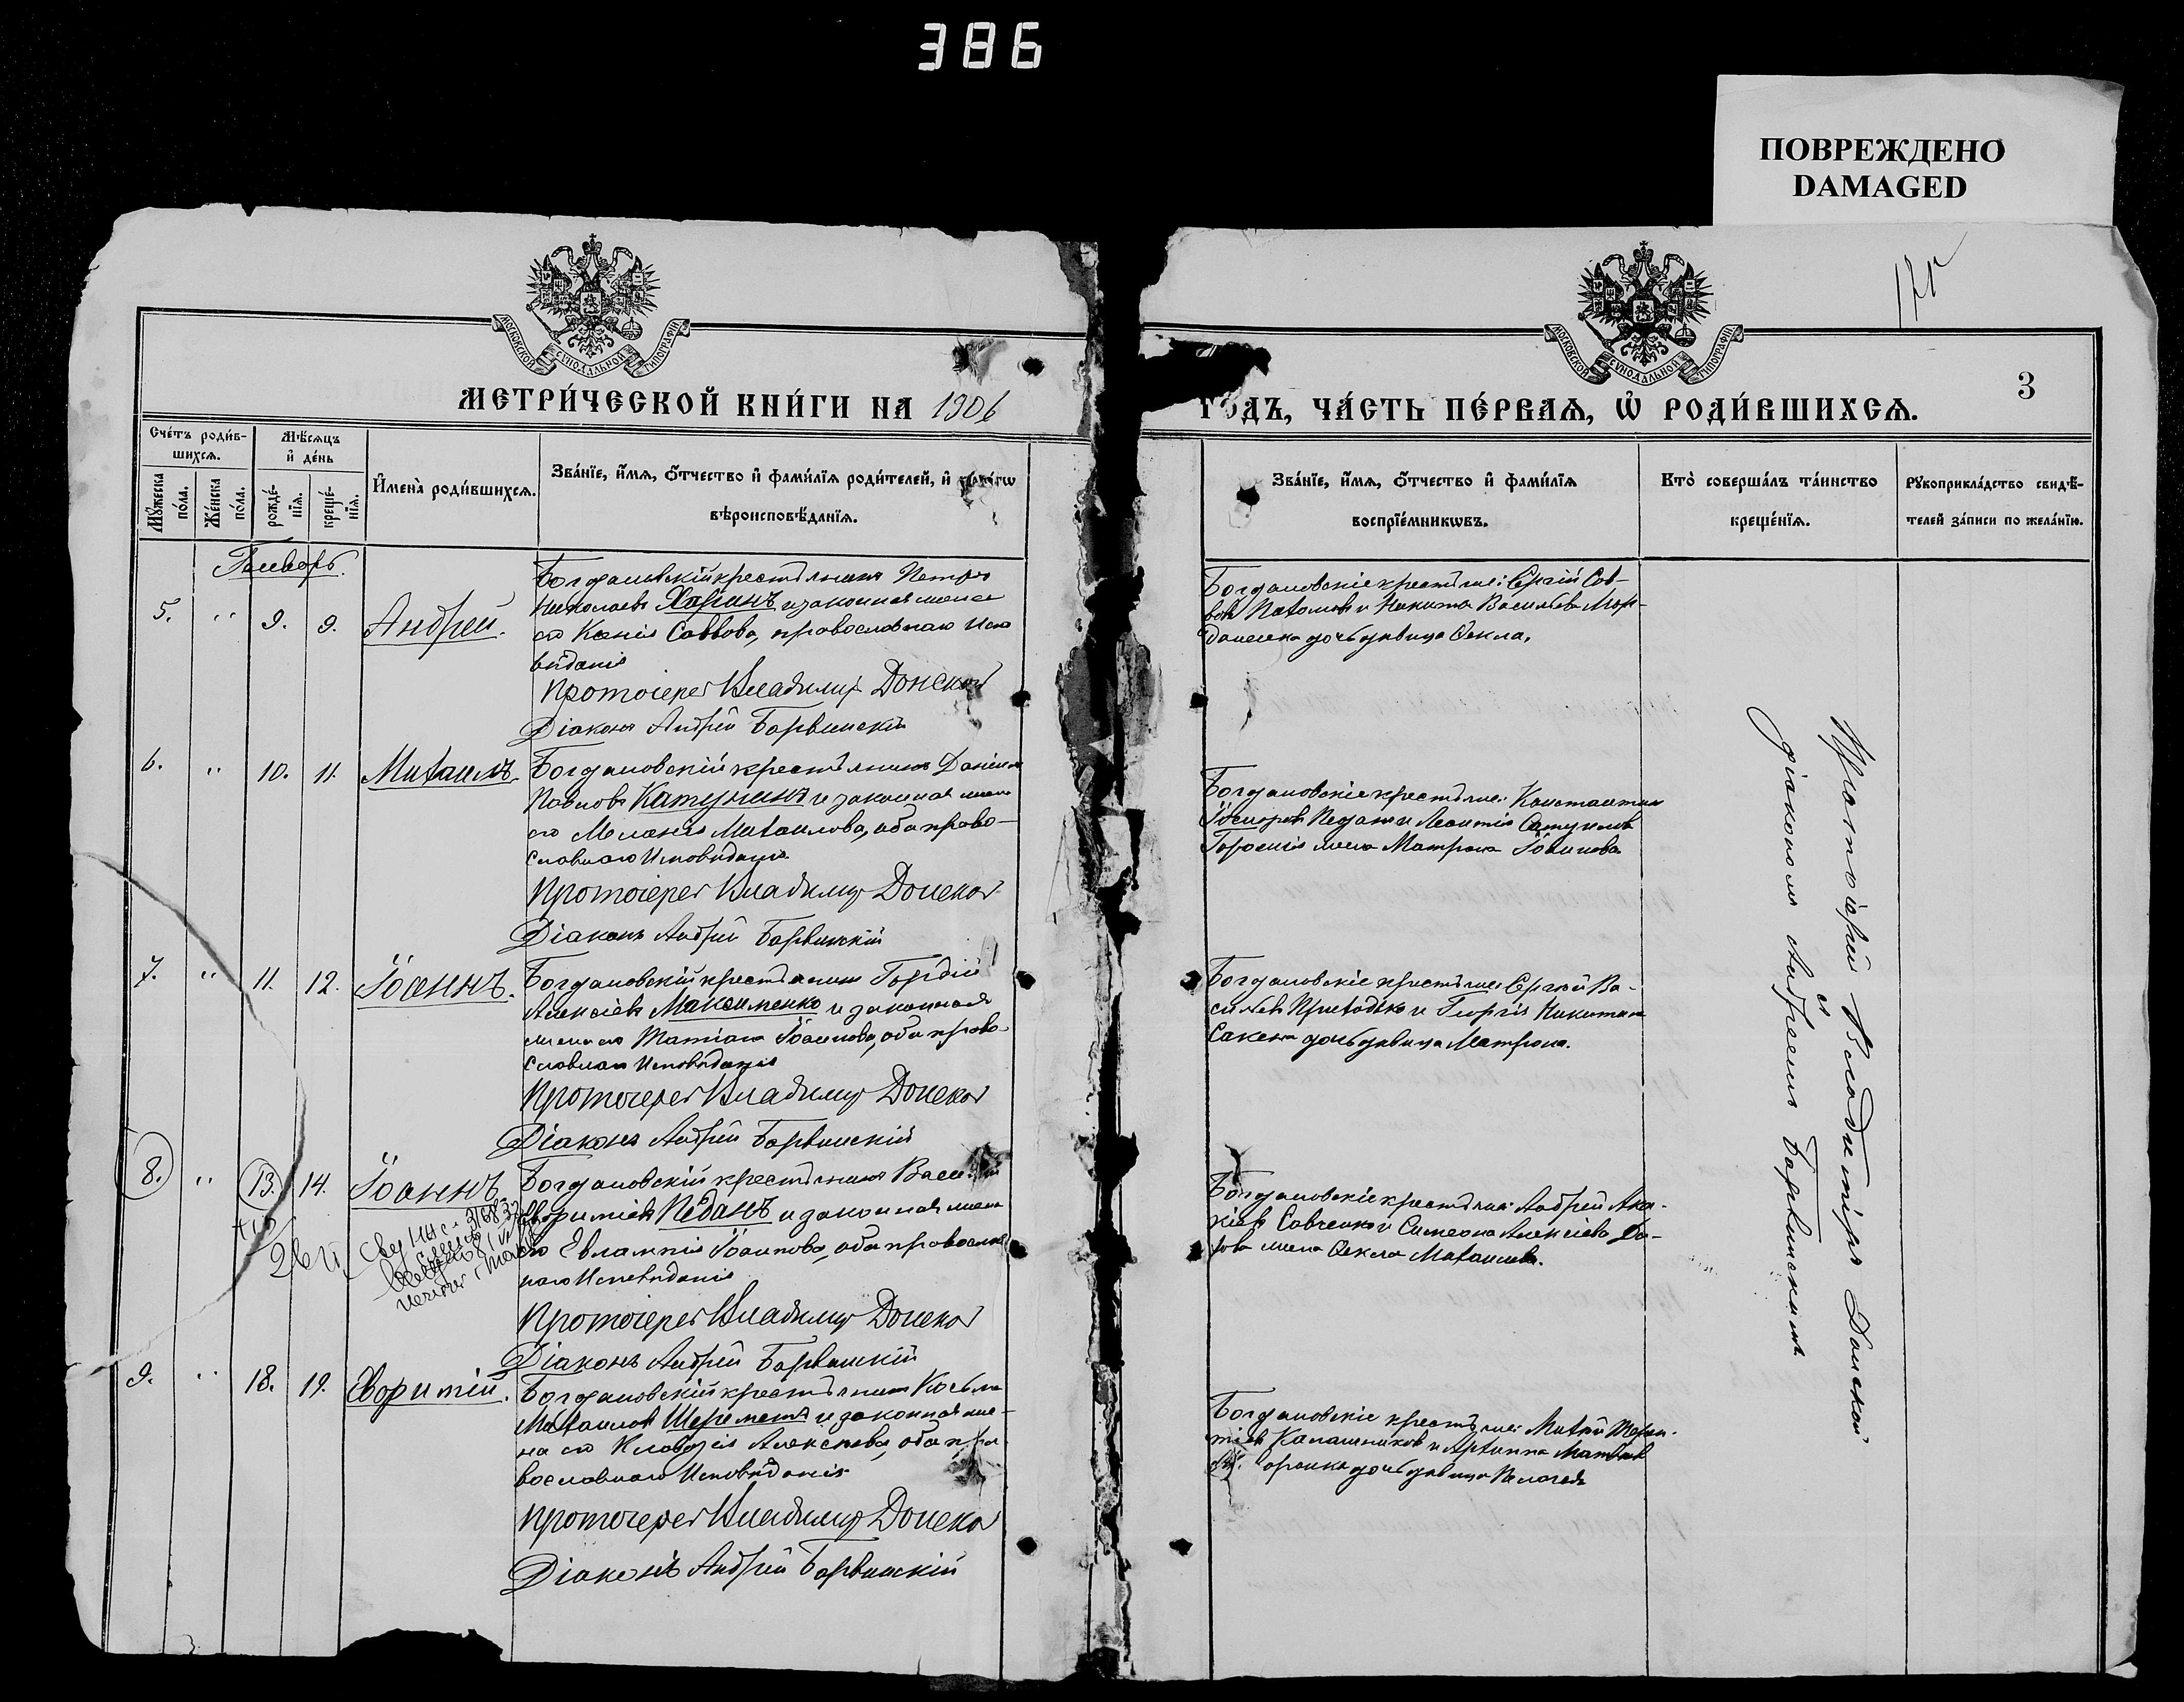 386
ПОВРЕЖДЕНО
DAMAGED
МОСКОВСКОЙ СѴНОДАЛЬНОЙ ТИПОГРАФІИ
МОСКОВСКОЙ СѴНОДАЛЬНОЙ ТИПОГРАФІИ
3
МЕТРИ́ЧЕСКОЙ КНИ́ГИ НА 1906
ГОДЪ, ЧА́СТЬ ПЕ́РВАѦ, Ѡ҆ РОДИ́ВШИХСѦ.
Сче́тъ роди́в-
шихсѧ.
Мѣ́сѧцъ
и҆ де́нь
Мꙋ́жеска
по́ла.
Же́нска
по́ла.
рожде́-
нїѧ.
креще́-
нїѧ.
И҆мена̀ роди́вшихсѧ.
Зва́нїе, и҆́мѧ, ѻ҆́тчество и҆ фами́лїѧ роди́телей, и҆
вѣроисповѣ́данїѧ.
Зва́нїе, и҆́мѧ, ѻ҆́тчество и҆ фами́лїѧ
воспрїе́мникѡвъ.
Кто̀ соверша́лъ та́инство
креще́нїѧ.
Рꙋкоприкла́дство свидѣ́-
телей за́писи по жела́нїю.
Январь.
5. " 9. 9. Андрей.
Богдановскій крестьянинъ Петръ
Николаевъ и законная жена
его Ксенія Саввова, православнаго Испо
вѣданія
Протоіерей Владиміръ Донской
Діаконъ Андрей Барвинскій
Богдановскіе крестьяне: Сергій Сав-
вовъ и Никита Васильевъ
дочь дѣвица Ѳекла.
6. " 10. 11. Михаилъ.
Богдановскій крестьянинъ Даніилъ
Павловъ и законная жена
его Меланія Михаилова, оба право-
славнаго Исповѣданія
Протоіерей Владиміръ Донской
Діаконъ Андрей Барвинскій
Богдановскіе крестьяне: Константинъ
Педанъ и Леонтія
жена Матрона Іоаннова
7. " 11. 12. Іоаннъ.
Богдановскій крестьянинъ Гордій
Алексіевъ Максименко и законная
жена его Татіана Іоаннова, оба право-
славнаго Исповѣданія
Протоіерей Владиміръ Донской
Діаконъ Андрей Барвинскій
Богдановскіе крестьяне: Сергій Ва-
сильевъ Приходько и Георгія Никитина
дочь дѣвица Матрона.
8. " 13. 14. Іоаннъ
Богдановскій крестьянинъ Василій
Евфиміевъ Педанъ и законная жена
его Евлампія Іоаннова, оба православ
наго Исповѣданія
Протоіерей Владиміръ Донской
Діаконъ Андрей Барвинскій
Богдановскіе крестьяне: Андрей Ака-
кіевъ Савченко и Симеона Алексіева
жена Ѳекла Михаилова.
9. " 18. 19. Евфимій.
Богдановскій крестьянинъ Косьма
Михаиловъ Шереметъ и законная же-
на его Клавдія Алексіева, оба пра
вославнаго Исповѣданія
Протоіерей Владиміръ Донской
Діаконъ Андрей Барвинскій
Богдановскіе крестьяне:
Калашниковъ и
дочь дѣвица Пелагея
Протоіерей Владиміръ Донской
съ
діакономъ Андреемъ Барвинскимъ